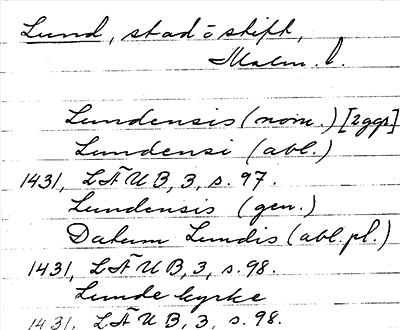 Lund, stad o stift,
Malm. l.
Lundensis (nom.) [2 ggr]
Lundensi (abl.)
1431, LÄUB, 3, s. 97.
Lundensis (gen.)
Datum Lundis (abl. pl.)
1431, LÄUB, 3, s. 98.
Lunde kyrke
1431, LÄUB, 3, s. 98.